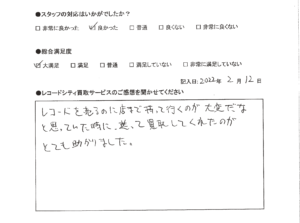 ●スタッフの対応はいかがでしたか？
□非常に良かった ☑良かった □普通 □良くない □非常に良くない
●総合満足度
☑大満足 □満足 □普通 □満足していない □非常に満足していない
記入日: 2022年 2月 12日
●レコードシティ買取サービスのご感想を聞かせてください
レコードを売るのに店まで持って行くのが大変だな
と思ってた時に、送って買取してくれたのが
とても助かりました。